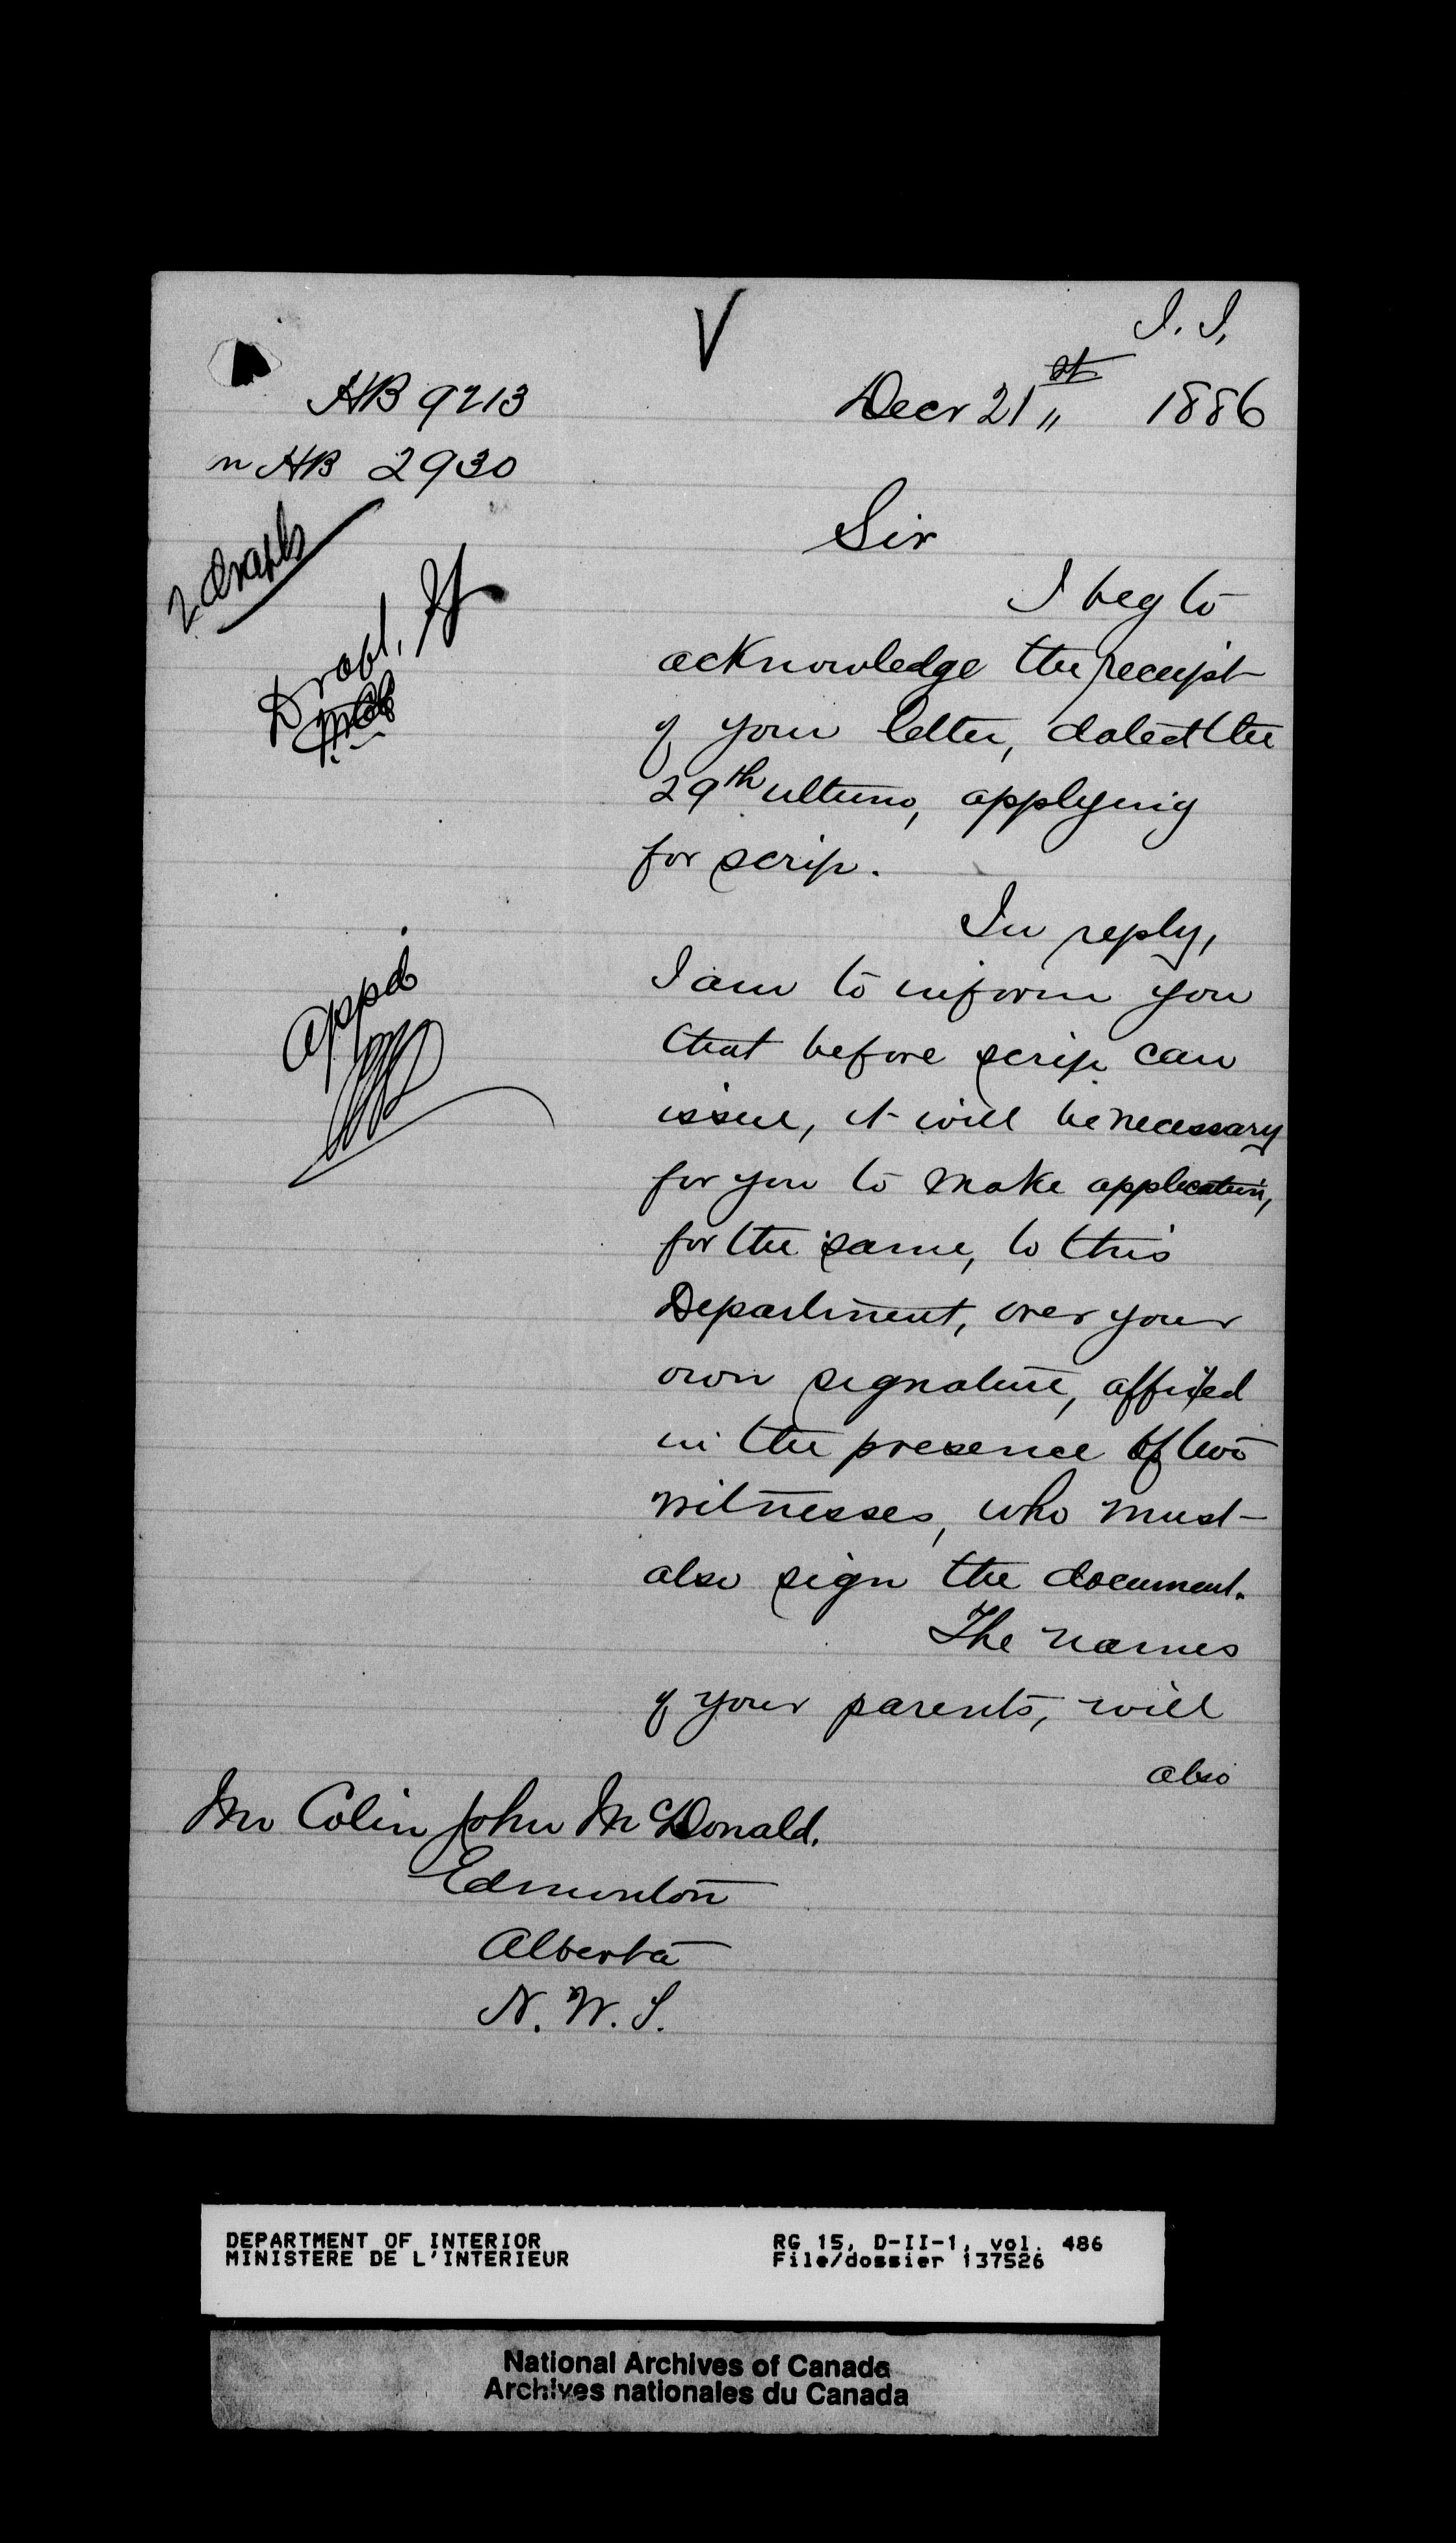 I. I.
HB 9213
Decr 21st 1886
n HB 2930
2 Drafts
Sir
I beg to
acknowledge the receipt
of your letter, dated the
29th ultimo, applying
for scrip.
In reply,
I am to inform you
that before scrip can
issue, it will be necessary
for you to make application,
for the same, to this
Department, over your
own signature, affixed
in the presence of two
witnesses, who must
also sign the document.
The names
of your parents, will
also
Appd
Mr Colin John McDonald.
Edmonton
Alberta
N. W. T.
DEPARTMENT OF INTERIOR
MINISTERE DE L'INTERIEUR
RG 15, D-II-1, vol. 486
File/dossier 137526
National Archives of Canada
Archives nationales du Canada